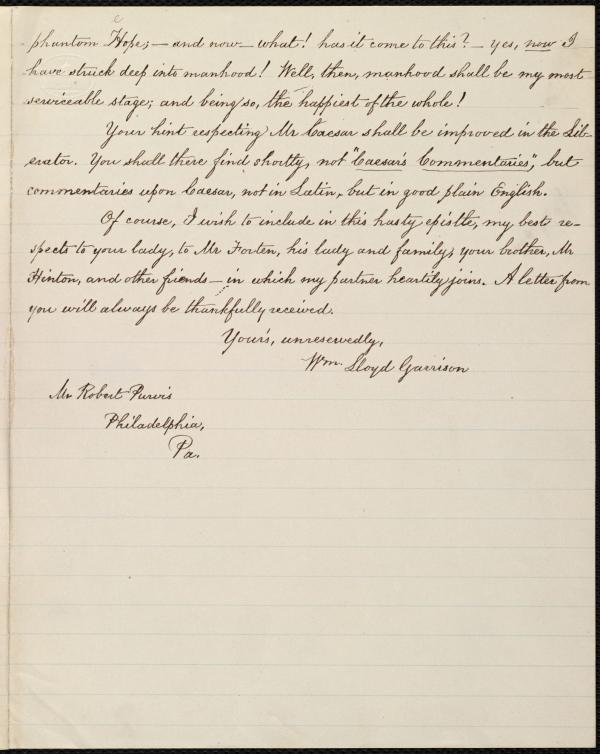 phantom Hope; — and now — what! has it come to this? — yes, now I
have struck deep into manhood! Well, then, manhood shall be my most
serviceable stage; and being so, the happiest of the whole!
Your hint respecting Mr Caesar shall be improved in the Lib-
erator. You shall there find shortly, not "Caesar's Commentaries", but
commentaries upon Caesar, not in Latin, but in good plain English.
Of course, I wish to include in this hasty epistle, my best re-
spects to your lady, to Mr Forten, his lady and family, your brother, Mr
Hinton, and other friends — in which my partner heartily joins. A letter from
you will always be thankfully received.
Your's, unreservedly,
Wm. Lloyd Garrison
Mr Robert Purvis
Philadelphia,
Pa.